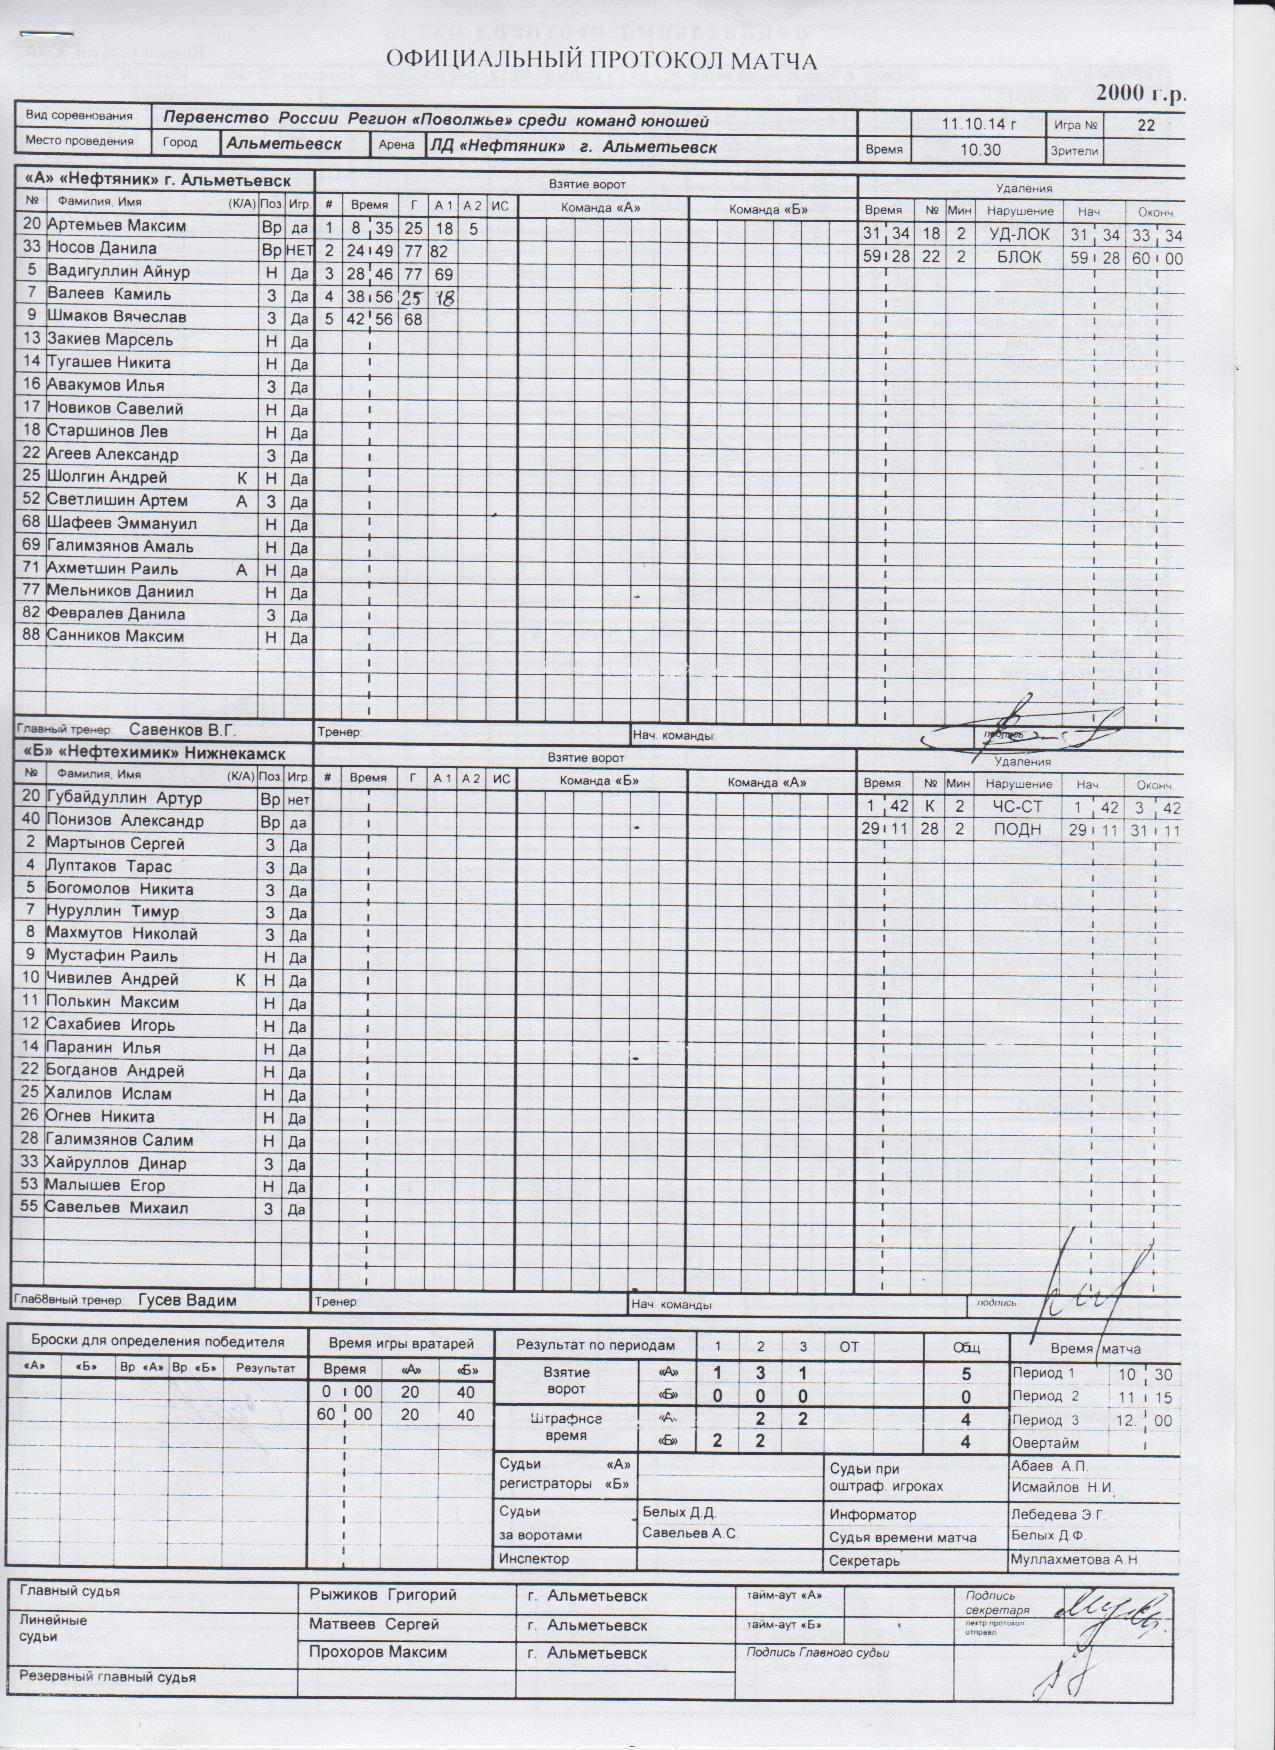 ОФИЦИАЛЬНЫЙ ПРОТОКОЛ МАТЧА
2000 г.р.
Вид соревнования Первенство России Регион «Поволжье» среди команд юношей 11.10.14 г Игра № 22
Место проведения Город Альметьевск Арена ЛД «Нефтяник» г. Альметьевск Время 10.30 Зрители
«А» «Нефтяник» г. Альметьевск Взятие ворот Удаления
№ Фамилия, Имя (К/А) Поз. Игр # Время Г А 1 А 2 ИС Команда «А» Команда «Б» Время № Мин Нарушение Нач. Оконч.
20 Артемьев Максим Вр да 1 8 35 25 18 5 31 34 18 2 УД-ЛОК 31 34 33 34
33 Носов Данила Вр НЕТ 2 24 49 77 82 59 28 22 2 БЛОК 59 28 60 00
5 Вадигуллин Айнур Н Да 3 28 46 77 69
7 Валеев Камиль З Да 4 38 56 25 18
9 Шмаков Вячеслав З Да 5 42 56 68
13 Закиев Марсель Н Да
14 Тугашев Никита Н Да
16 Авакумов Илья З Да
17 Новиков Савелий Н Да
18 Старшинов Лев Н Да
22 Агеев Александр З Да
25 Шолгин Андрей К Н Да
52 Светлишин Артем А З Да
68 Шафеев Эммануил Н Да
69 Галимзянов Амаль Н Да
71 Ахметшин Раиль А Н Да
77 Мельников Даниил Н Да
82 Февралев Данила З Да
88 Санников Максим Н Да
Главный тренер: Савенков В.Г. Тренер: Нач. команды: подпись
«Б» «Нефтехимик» Нижнекамск Взятие ворот Удаления
№ Фамилия, Имя (К/А) Поз. Игр. # Время Г А 1 А 2 ИС Команда «Б» Команда «А» Время № Мин Нарушение Нач. Оконч.
20 Губайдуллин Артур Вр нет 1 42 К 2 ЧС-СТ 1 42 3 42
40 Понизов Александр Вр да 29 11 28 2 ПОДН 29 11 31 11
2 Мартынов Сергей З Да
4 Луптаков Тарас З Да
5 Богомолов Никита З Да
7 Нуруллин Тимур З Да
8 Махмутов Николай З Да
9 Мустафин Раиль Н Да
10 Чивилев Андрей К Н Да
11 Полькин Максим Н Да
12 Сахабиев Игорь Н Да
14 Паранин Илья Н Да
22 Богданов Андрей Н Да
25 Халилов Ислам Н Да
26 Огнев Никита Н Да
28 Галимзянов Салим Н Да
33 Хайруллов Динар З Да
53 Малышев Егор Н Да
55 Савельев Михаил З Да
Гла68вный тренер: Гусев Вадим Тренер: Нач. команды: подпись
Броски для определения победителя Время игры вратарей Результат по периодам 1 2 3 ОТ Общ Время матча
«А» «Б» Вр «А» Вр «Б» Результат Время «А» «Б» Взятие ворот «А» 1 3 1 5 Период 1 10 30
0 00 20 40 «Б» 0 0 0 0 Период 2 11 15
60 00 20 40 Штрафное время «А» 2 2 4 Период 3 12. 00
«Б» 2 2 4 Овертайм
Судьи «А» Судьи при Абаев А.П.
регистраторы «Б» оштраф. игроках Исмайлов Н.И.
Судьи Белых Д.Д. Информатор Лебедева Э.Г.
за воротами Савельев А.С. Судья времени матча Белых Д.Ф.
Инспектор Секретарь Муллахметова А.Н.
Главный судья Рыжиков Григорий г. Альметьевск тайм-аут «А» Подпись секретаря
Линейные судьи Матвеев Сергей г. Альметьевск тайм-аут «Б»
Прохоров Максим г. Альметьевск Подпись Главного судьи
Резервный главный судья